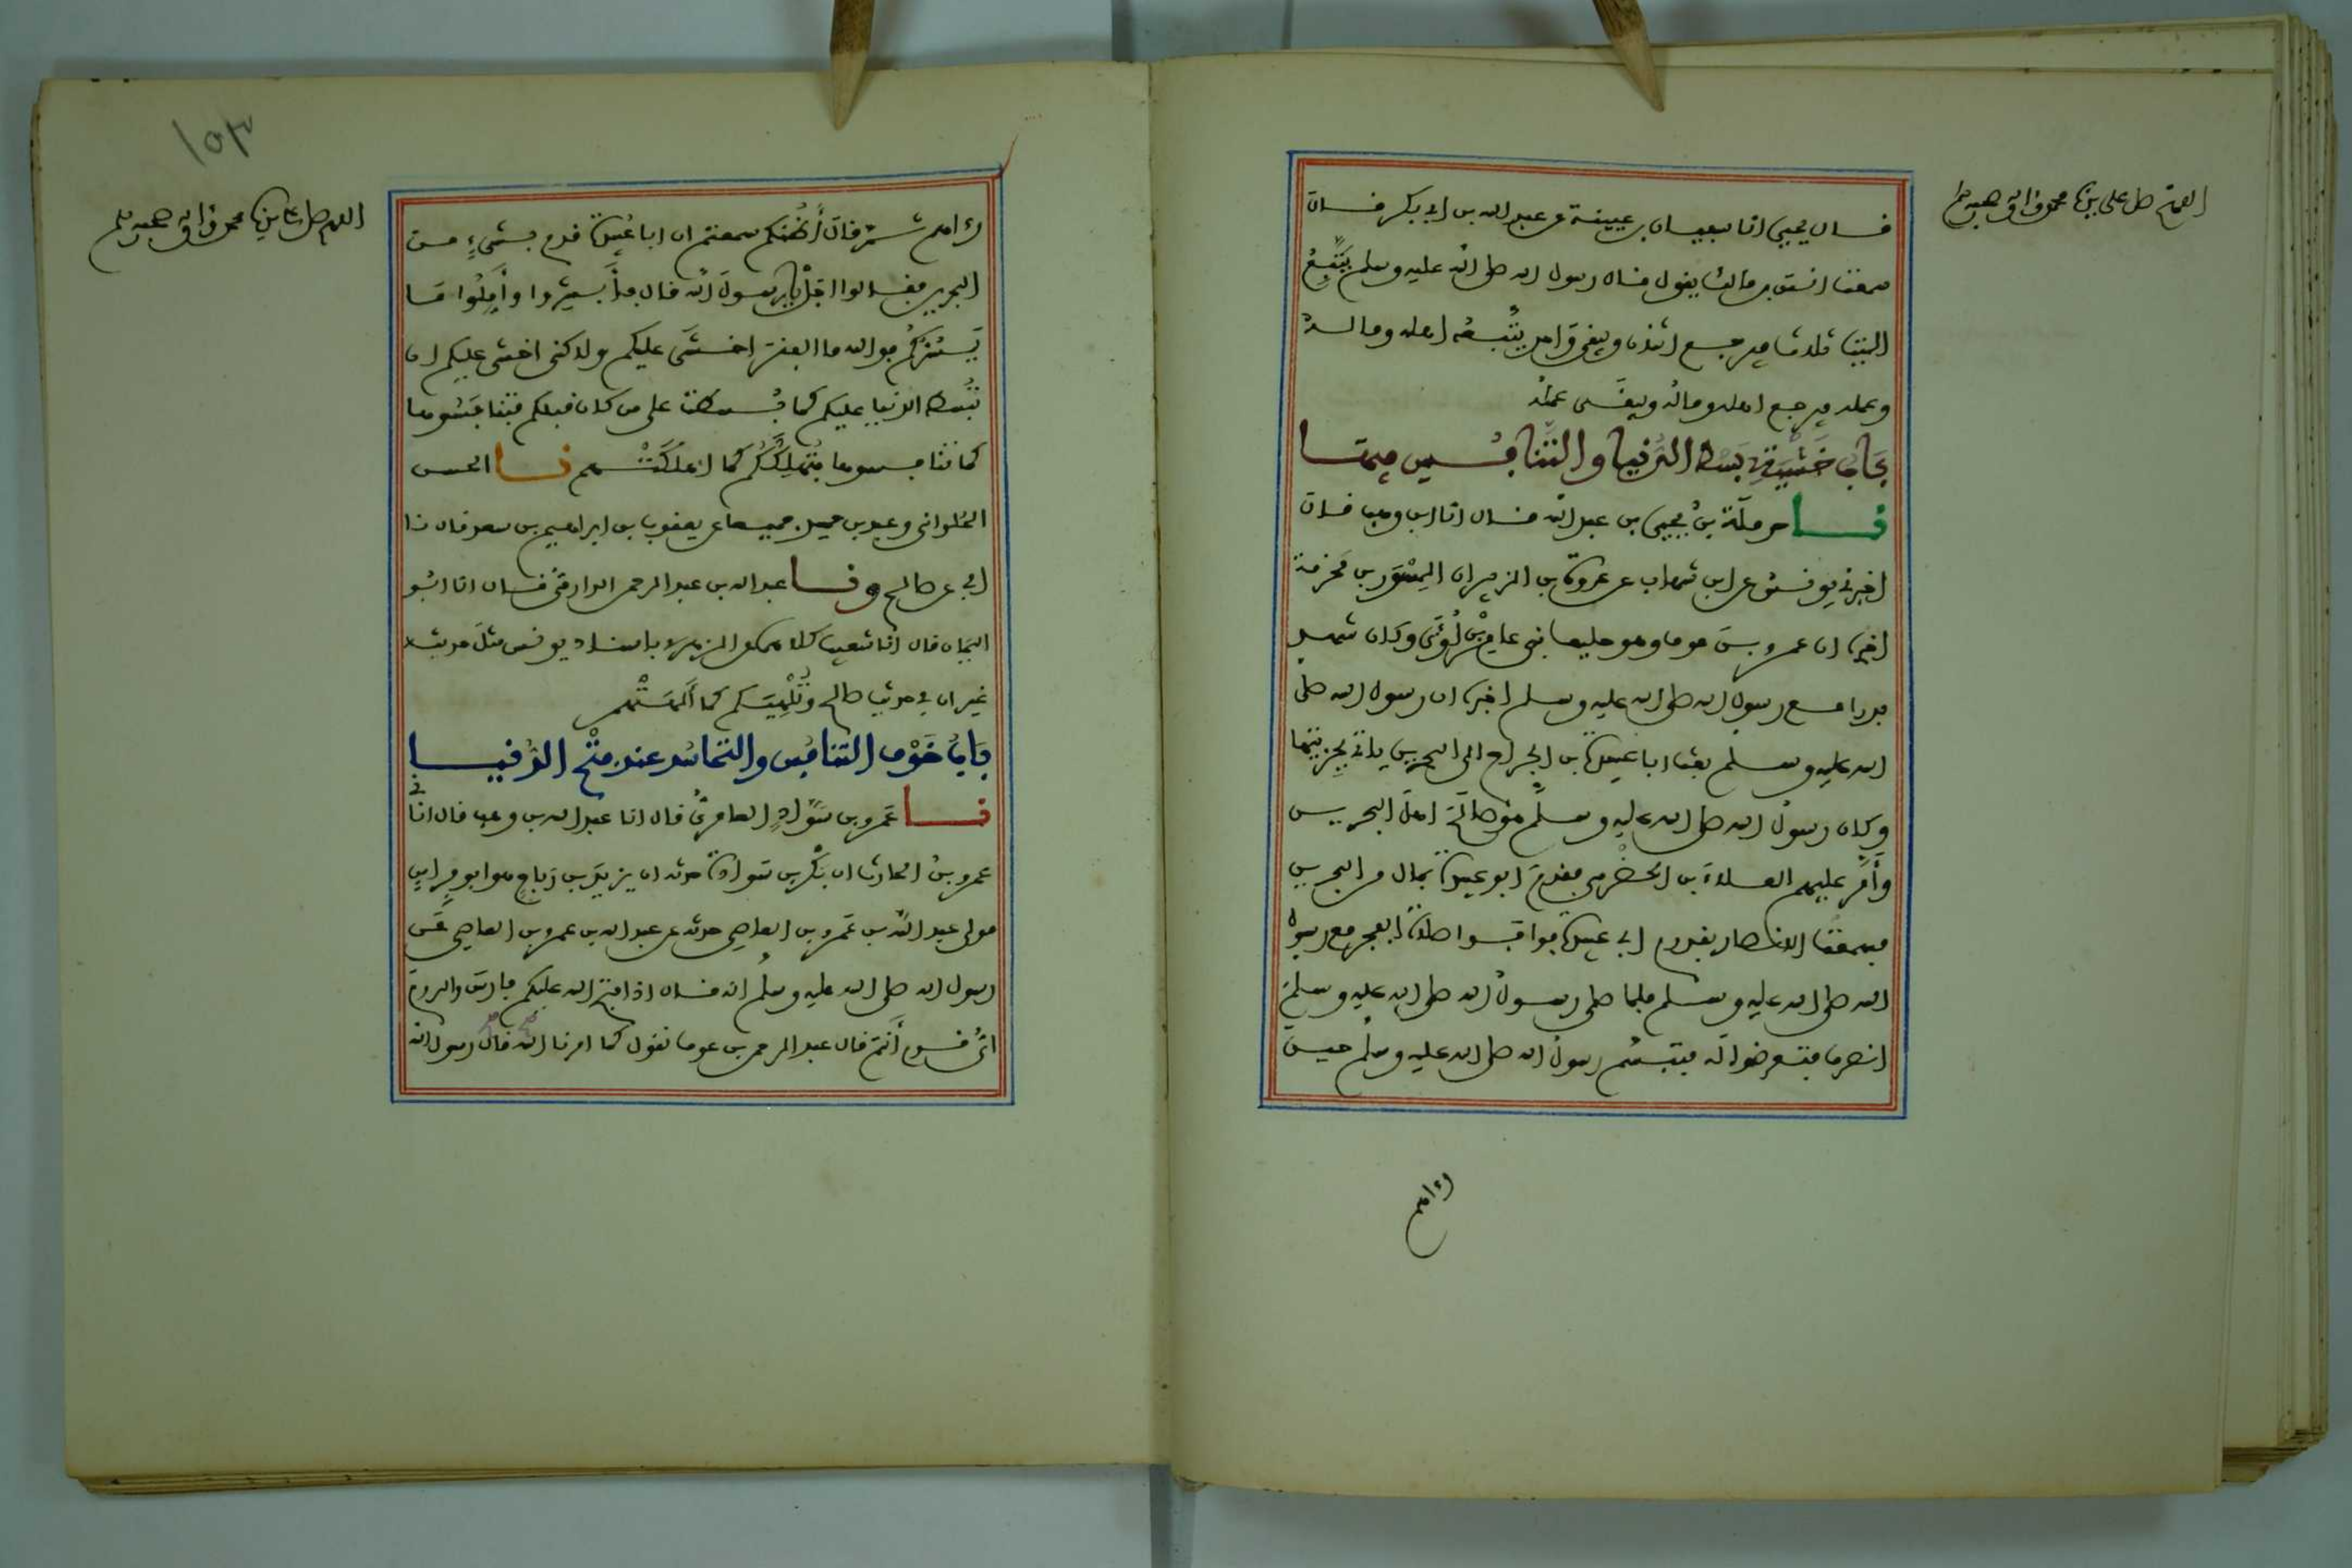 اللهم صل على نبينا محمد وآله وصحبه وسلم
قال يحيى انا سفيان بن عيينة عن عبد الله بن ابي بكر قال
سمعت انس بن مالك يقول قال رسول الله صلى الله عليه وسلم يَتْبَعُ
الميت ثلاث فيرجع اثنان ويبقى واحد يتبعه اهله وماله
وعمله فيرجع اهله وماله ويبقى عمله
بَابُ خَشْيَةِ بَسْط الدُّنيا والتَّنافُس فيها
نا حرملة بن يحيى بن عبد الله قال انا ابن وهب قال
اخبرني يونس عن ابن شهاب عن عروة بن الزبير ان المِسْوَر بن مخرمة
اخبره ان عمرو بن عوف وهو حليف بني عامر بن لُؤَيّ وكان شهد
بدرا مع رسول الله صلى الله عليه وسلم اخبره ان رسول الله صلى
الله عليه وسلم بعث ابا عبيدة بن الجراح الى البحرين ياتي بِجِزيتها
وكان رسول الله صلى الله عليه وسلم هو صالَحَ اهل البحرين
وأَمَّر عليهم العلاء بن الحضرمي فقدم ابو عبيدة بمال من البحرين
فسمعت الانصار بقدوم ابي عبيدة فوافوا صلاة الفجر مع رسول
الله صلى الله عليه وسلم فلما صلى رسول الله صلى الله عليه وسلم
انصرف فتعرضوا له فتبسم رسول الله صلى الله عليه وسلم حين
رءاهم
١٥٣
اللهم صل على نبينا محمد وآله وصحبه وسلم
رءاهم ثم قال أَظُنكم سمعتم ان ابا عبيدة قدم بشيءٍ من
البحرين فقالوا اجل يا رسول الله قال فأَبشِروا وأَمِّلُوا ما
يَسُرُّكُم فو الله ما الفقر اخشى عليكم ولاكني اخشى عليكم ان
تُبْسط الدنيا عليكم كما بُسطت على من كان قبلكم فتنافسوها
كما تنافسوها فتُهلِكَكُم كما اهلكتهم نا الحسن
الحُلواني وعبد بن حميد جميعا عن يعقوب بن ابراهيم بن سعد قال نا
ابي عن صالح ونا عبد الله بن عبد الرحمن الدارمي قال انا ابو
اليمان قال انا شعيب كلاهما عن الزهري باسناد يونس مثل حديثه
غير ان في حديث صالح وتُلْهِيَكم كما أَلْهَتْهم
بَابُ خَوْف التنافُس والتحاسُد عند فتْح الدُّنيا
نا عَمرو بن سَوَّادٍ العامريُّ قال انا عبد الله بن وهب قال اخبرني
عمرو بن الحارث ان بَكْر بن سَوادة حدثه ان يزيد بن رَباح هو ابو فِراسٍ
مولى عبد الله بن عَمرو بن العاصي حدثه عن عبد الله بن عمرو بن العاصي عن
رسول الله صلى الله عليه وسلم انه قال اذا فتح الله عليكم فارس والروم
ايُّ قوم أنتم قال عبد الرحمن بن عوف نقول كما امرنا الله قال رسول الله